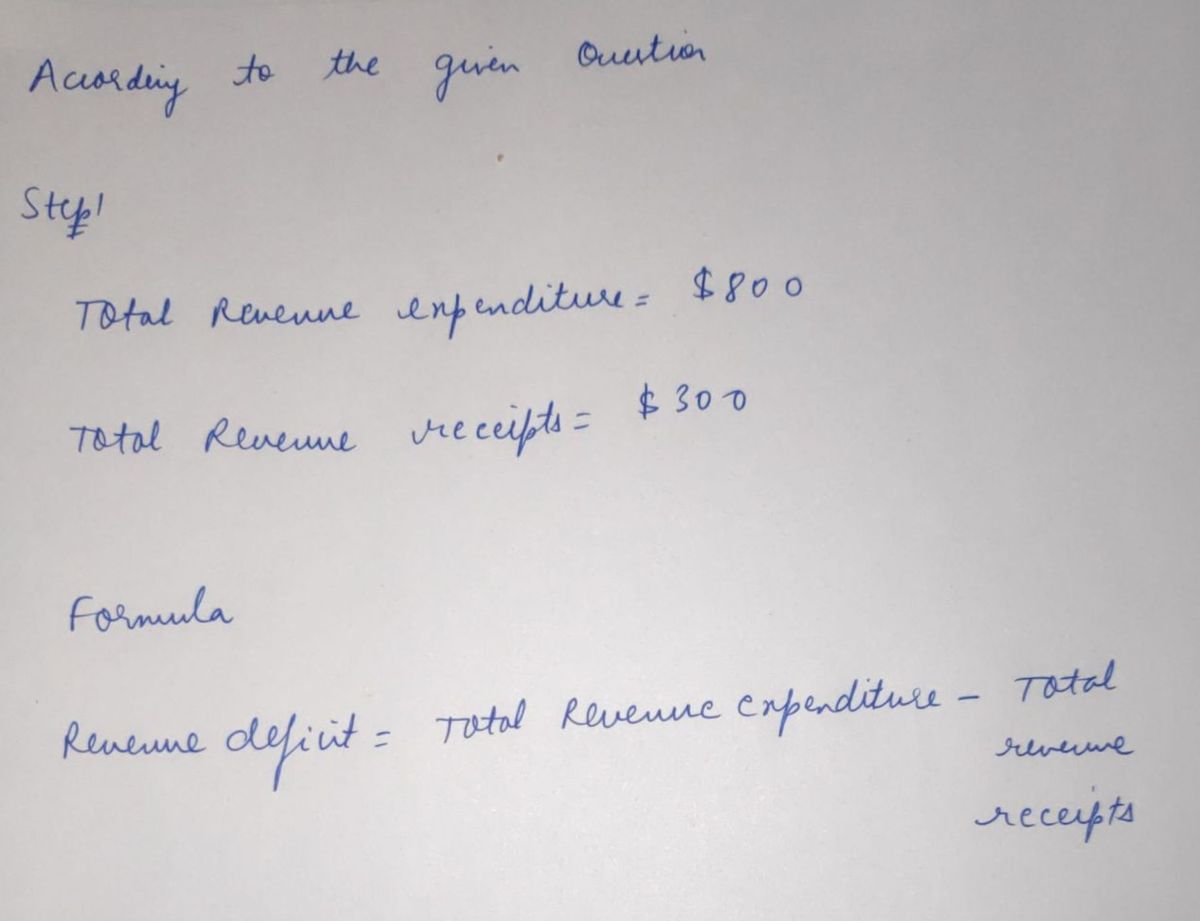 According to the given Question
Step1
Total Revenue expenditure = $800
Total Revenue receipts = $300
Formula
Revenue deficit = Total Revenue expenditure - Total
revenue
receipts